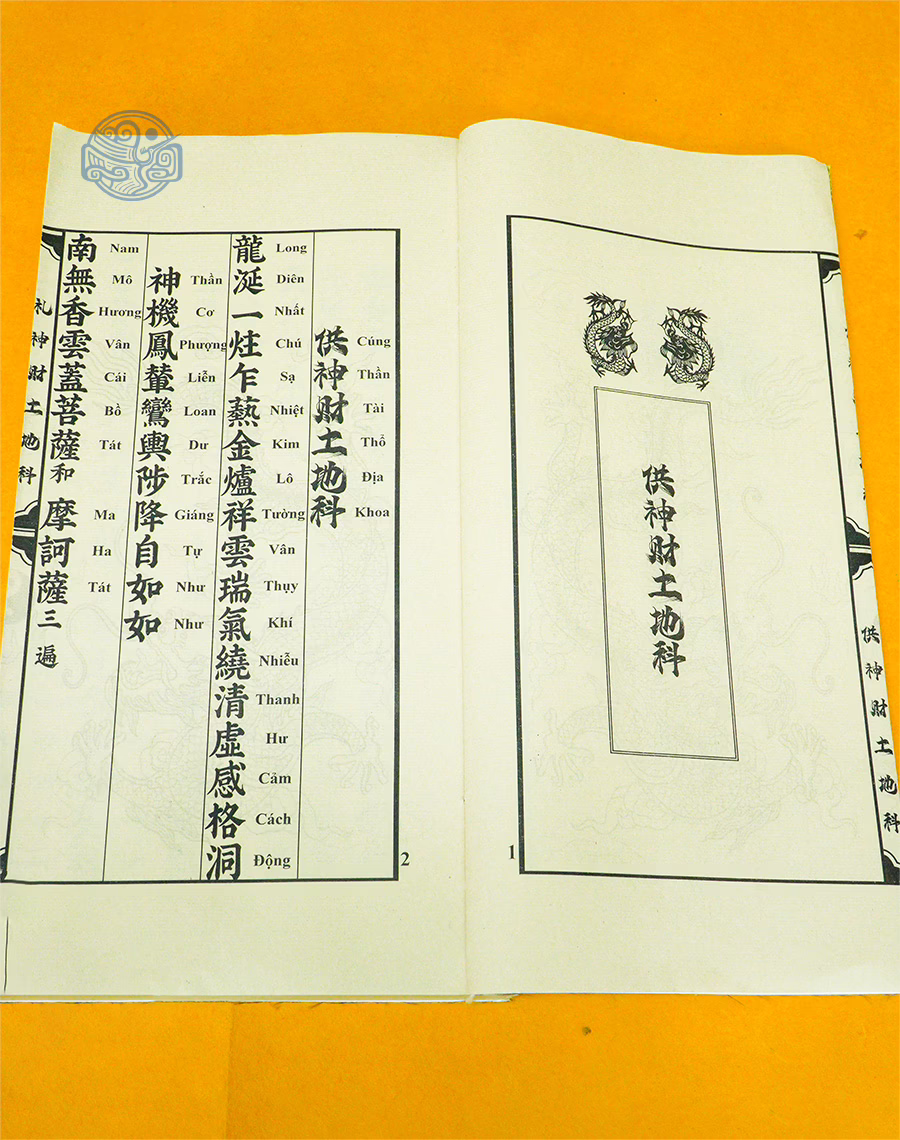 供神財土地科
供神財土地科
1
供神財土地科
Cúng Thần Tài Thổ Địa Khoa
龍涎一炷乍爇金爐祥雲瑞氣繞清虛感格洞
Long Diên Nhất Chú Sạ Nhiệt Kim Lô Tường Vân Thụy Khí Nhiễu Thanh Hư Cảm Cách Động
神機鳳輦鸞輿陟降自如如
Thần Cơ Phượng Liễn Loan Dư Trắc Giáng Tự Như Như
南無香雲蓋菩薩和摩訶薩三遍
Nam Mô Hương Vân Cái Bồ Tát Ma Ha Tát
札神財土地科
2